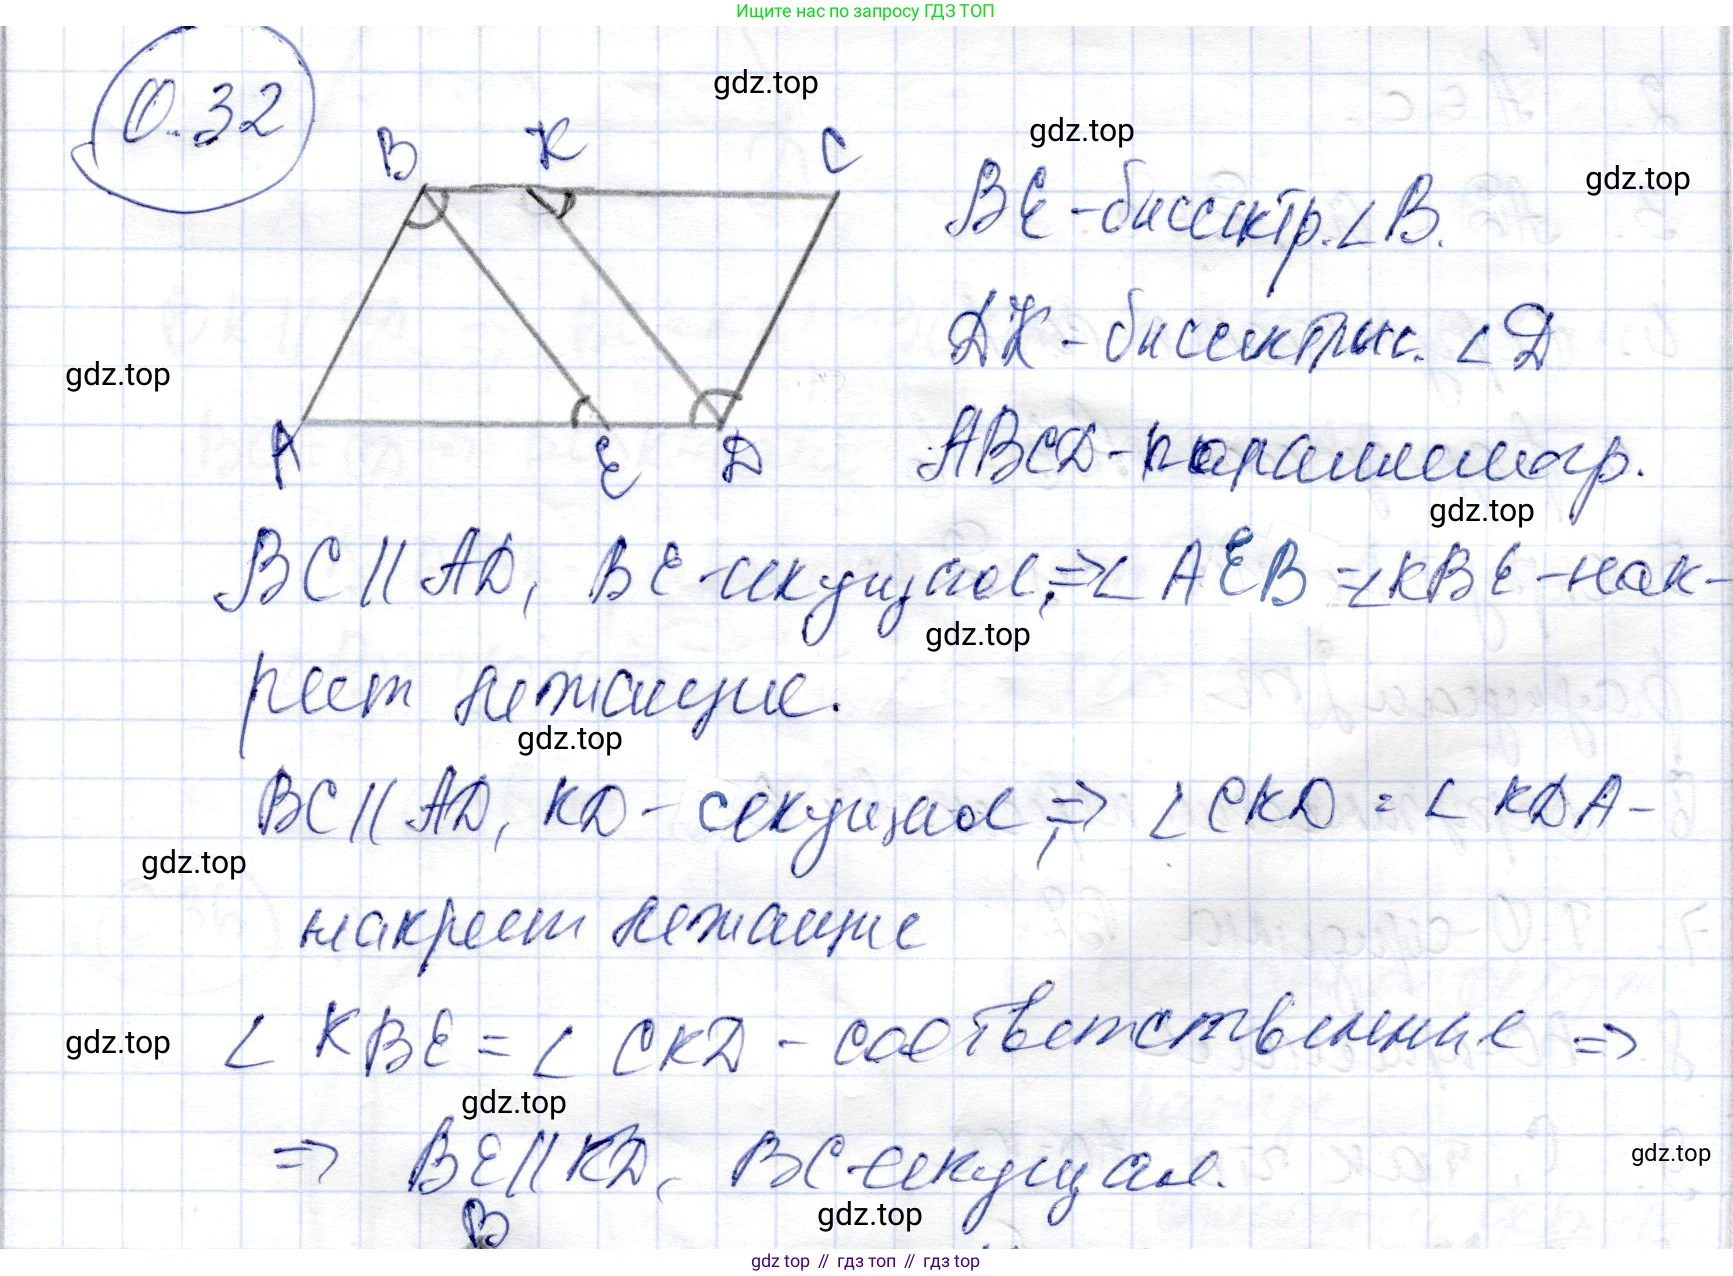 Ищите нас по запросу ГДЗ ТОП
0.32
gdz.top
gdz.top
gdz.top
B K C
BE - биссектр. ∠B.
DK - биссектрис. ∠D
gdz.top
A E D
ABCD - параллелогр.
gdz.top
BC || AD, BE - секущая, => ∠AEB = ∠KBE - нак-
gdz.top
рест лежащие.
gdz.top
BC || AD, KD - секущая, => ∠CKD = ∠KDA -
gdz.top
накрест лежащие
∠KBE = ∠CKD - соответственные =>
gdz.top
gdz.top
=> BE || KD, BC - секущая.
gdz.top
gdz.top
B
gdz top // гдз топ // гдз top